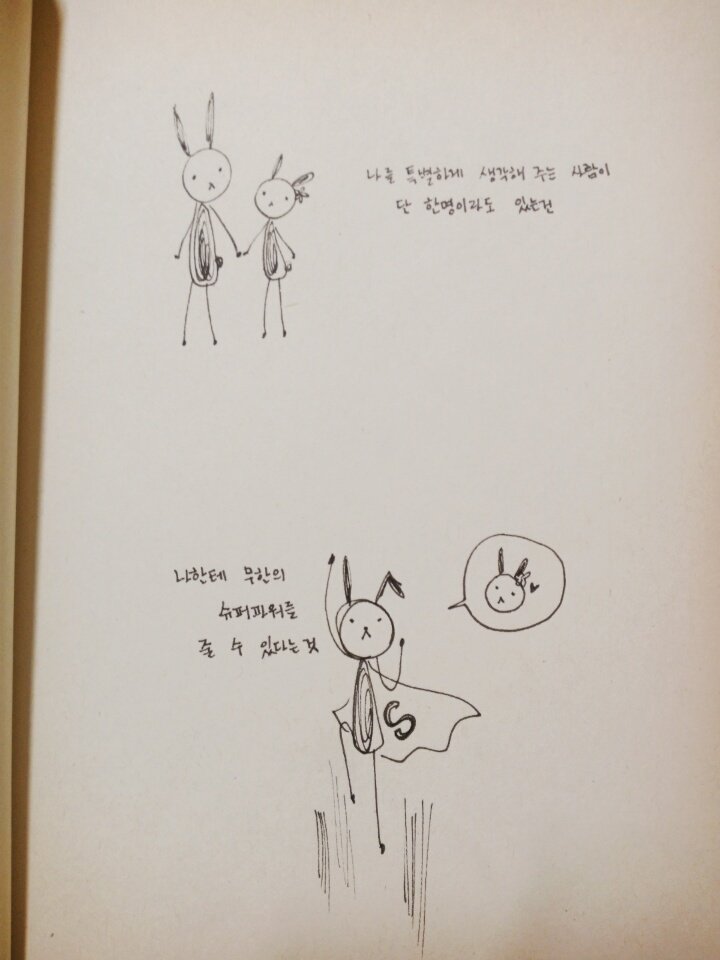 나를 특별하게 생각해 주는 사람이
단 한명이라도 있는건
나한테 무한의
슈퍼파워를
줄 수 있다는것
S